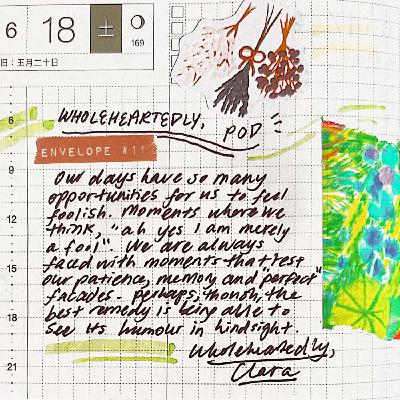 6 18 土 169
旧：五月二十日
WHOLEHEARTEDLY, POD
ENVELOPE #11
Our days have so many
opportunities for us to feel
foolish. Moments where we
think, "ah yes I am merely
a fool". We are always
faced with moments that test
our patience, memory and "perfect"
facades - perhaps, though, the
best remedy is being able to
see its humour in hindsight.
Wholeheartedly,
Clara
6
9
12
15
18
21